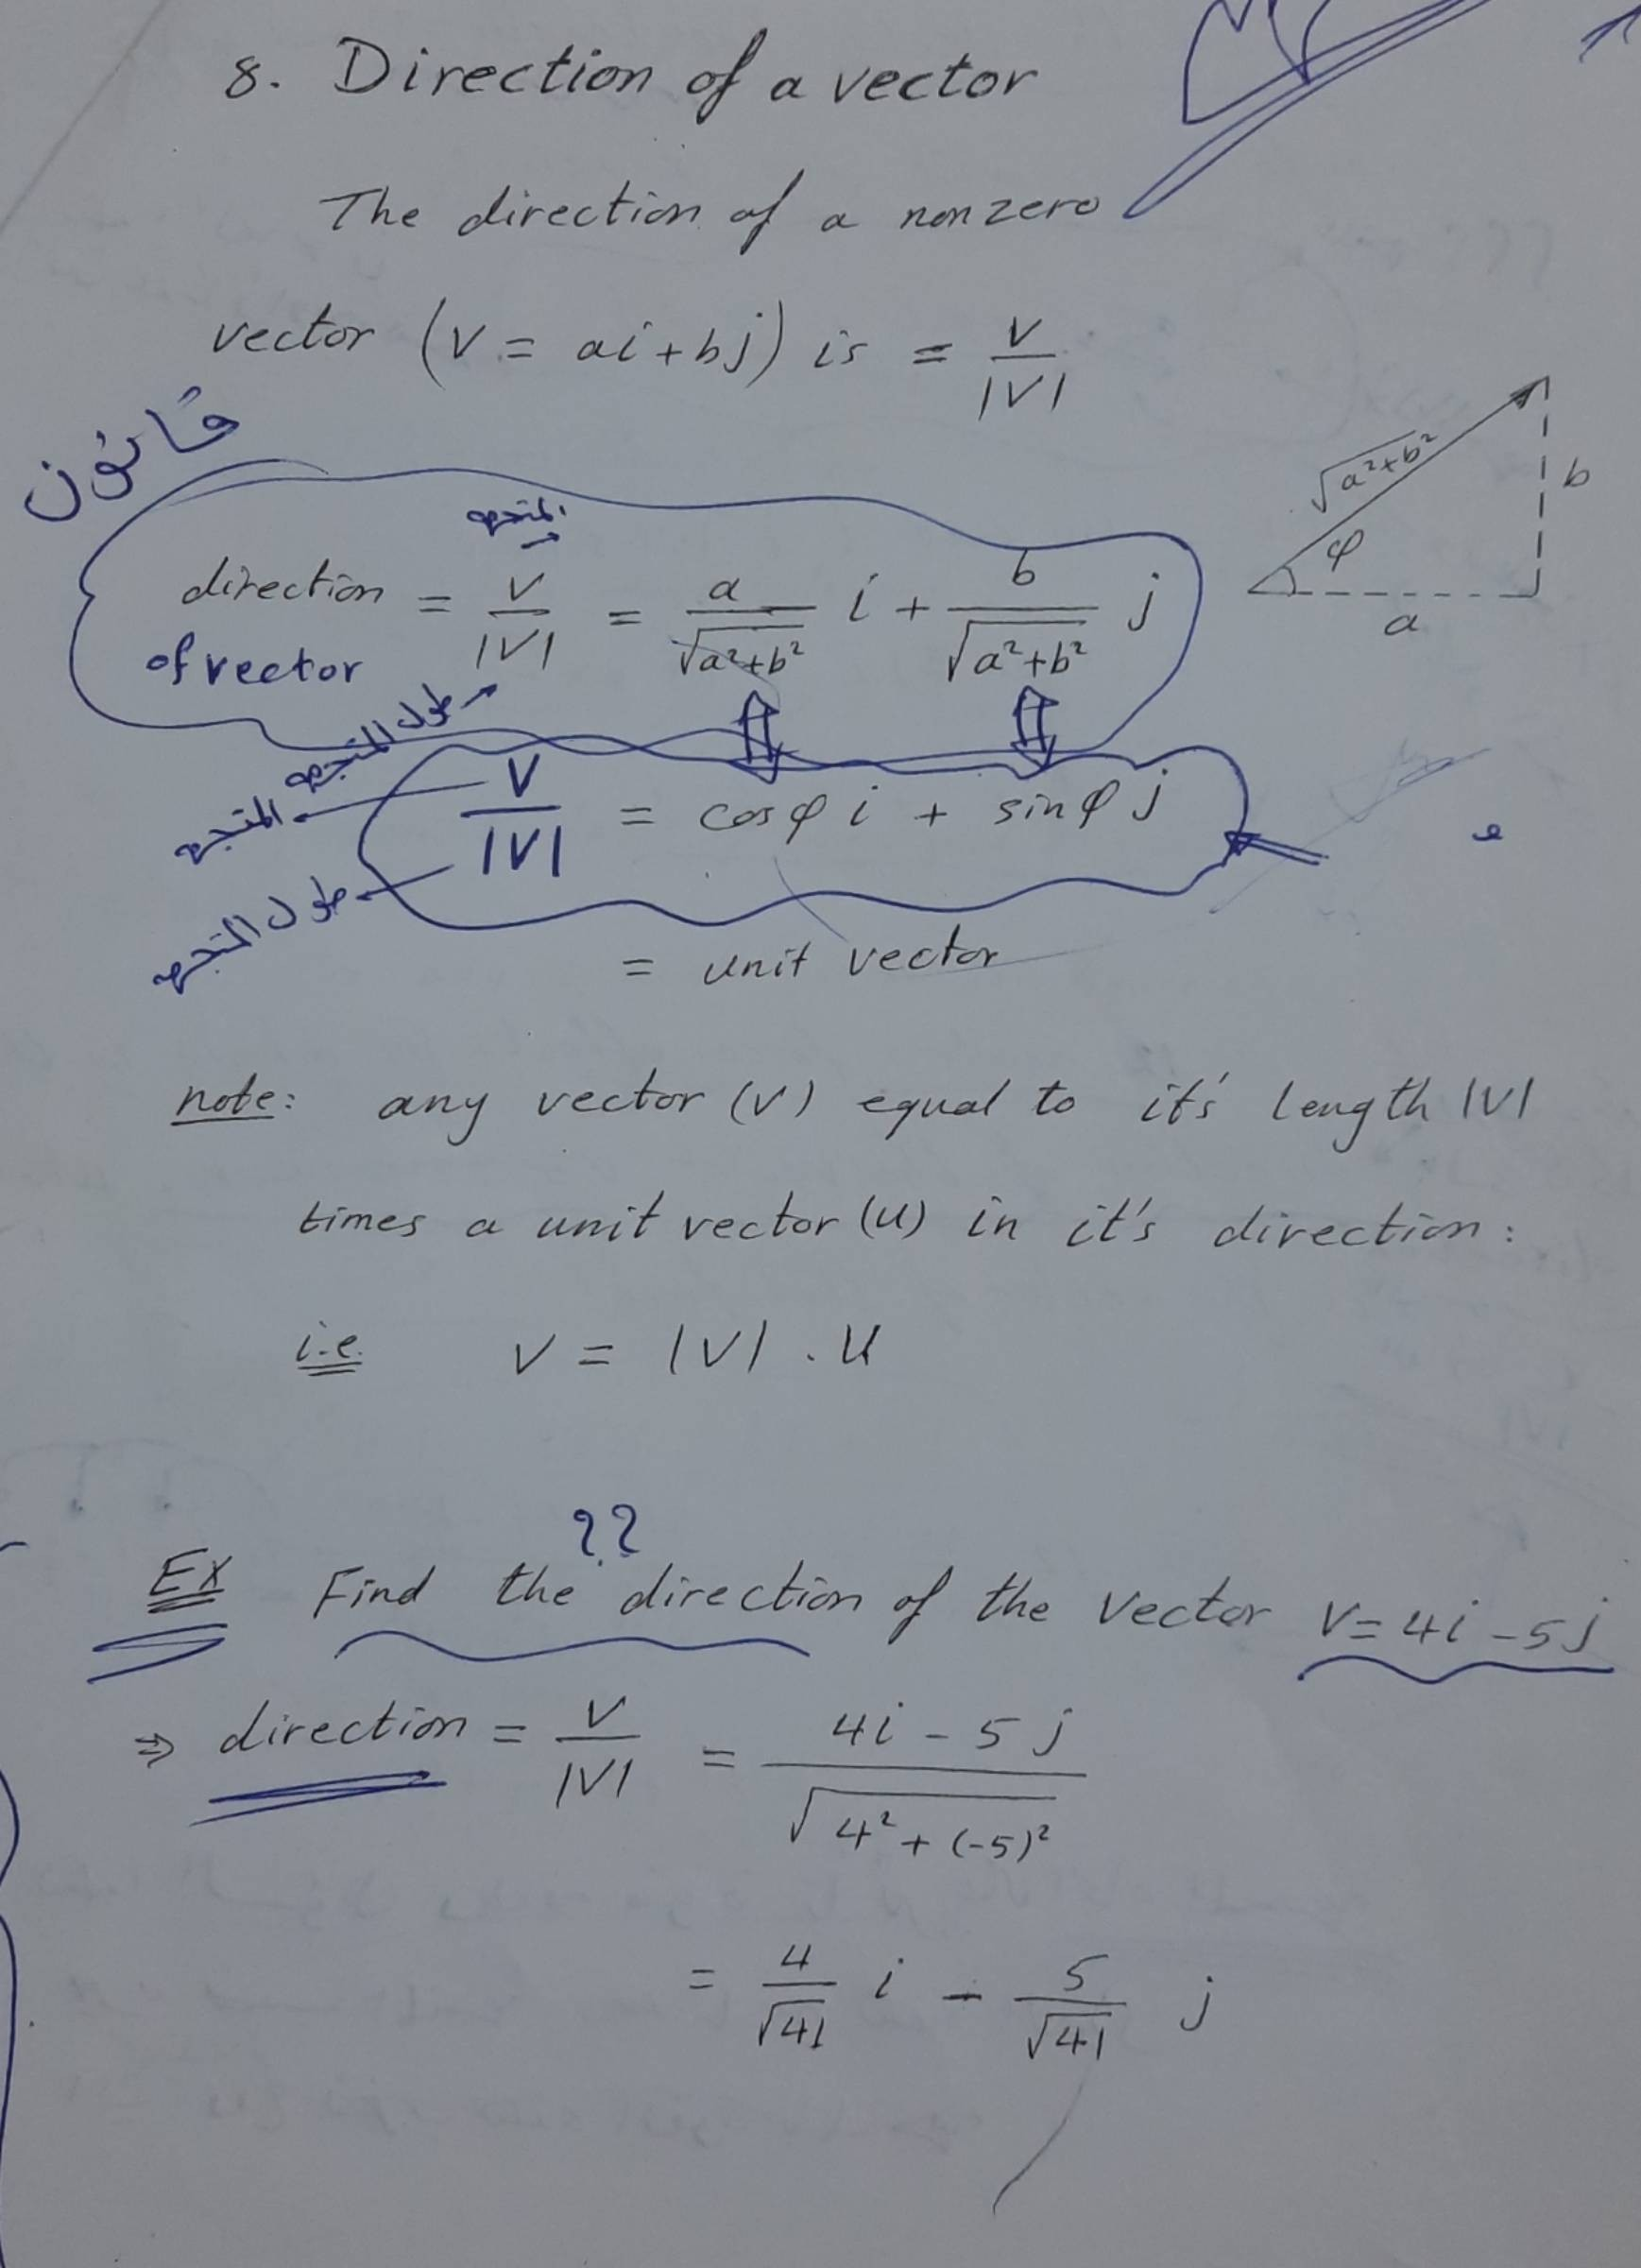 8. Direction of a vector
The direction of a nonzero
vector (V = ai + bj) is = V / |V|
قانون
المتجه
direction of vector = V / |V| = a / √a²+b² i + b / √a²+b² j
طول المتجه
√a²+b²
b
φ
a
المتجه
V / |V| = cosφ i + sinφ j
طول المتجه
= unit vector
note: any vector (V) equal to it's length |V|
times a unit vector (U) in it's direction:
i.e. V = |V| . U
??
EX Find the direction of the vector V = 4i - 5j
⇒ direction = V / |V| = 4i - 5j / √4² + (-5)²
= 4 / √41 i - 5 / √41 j